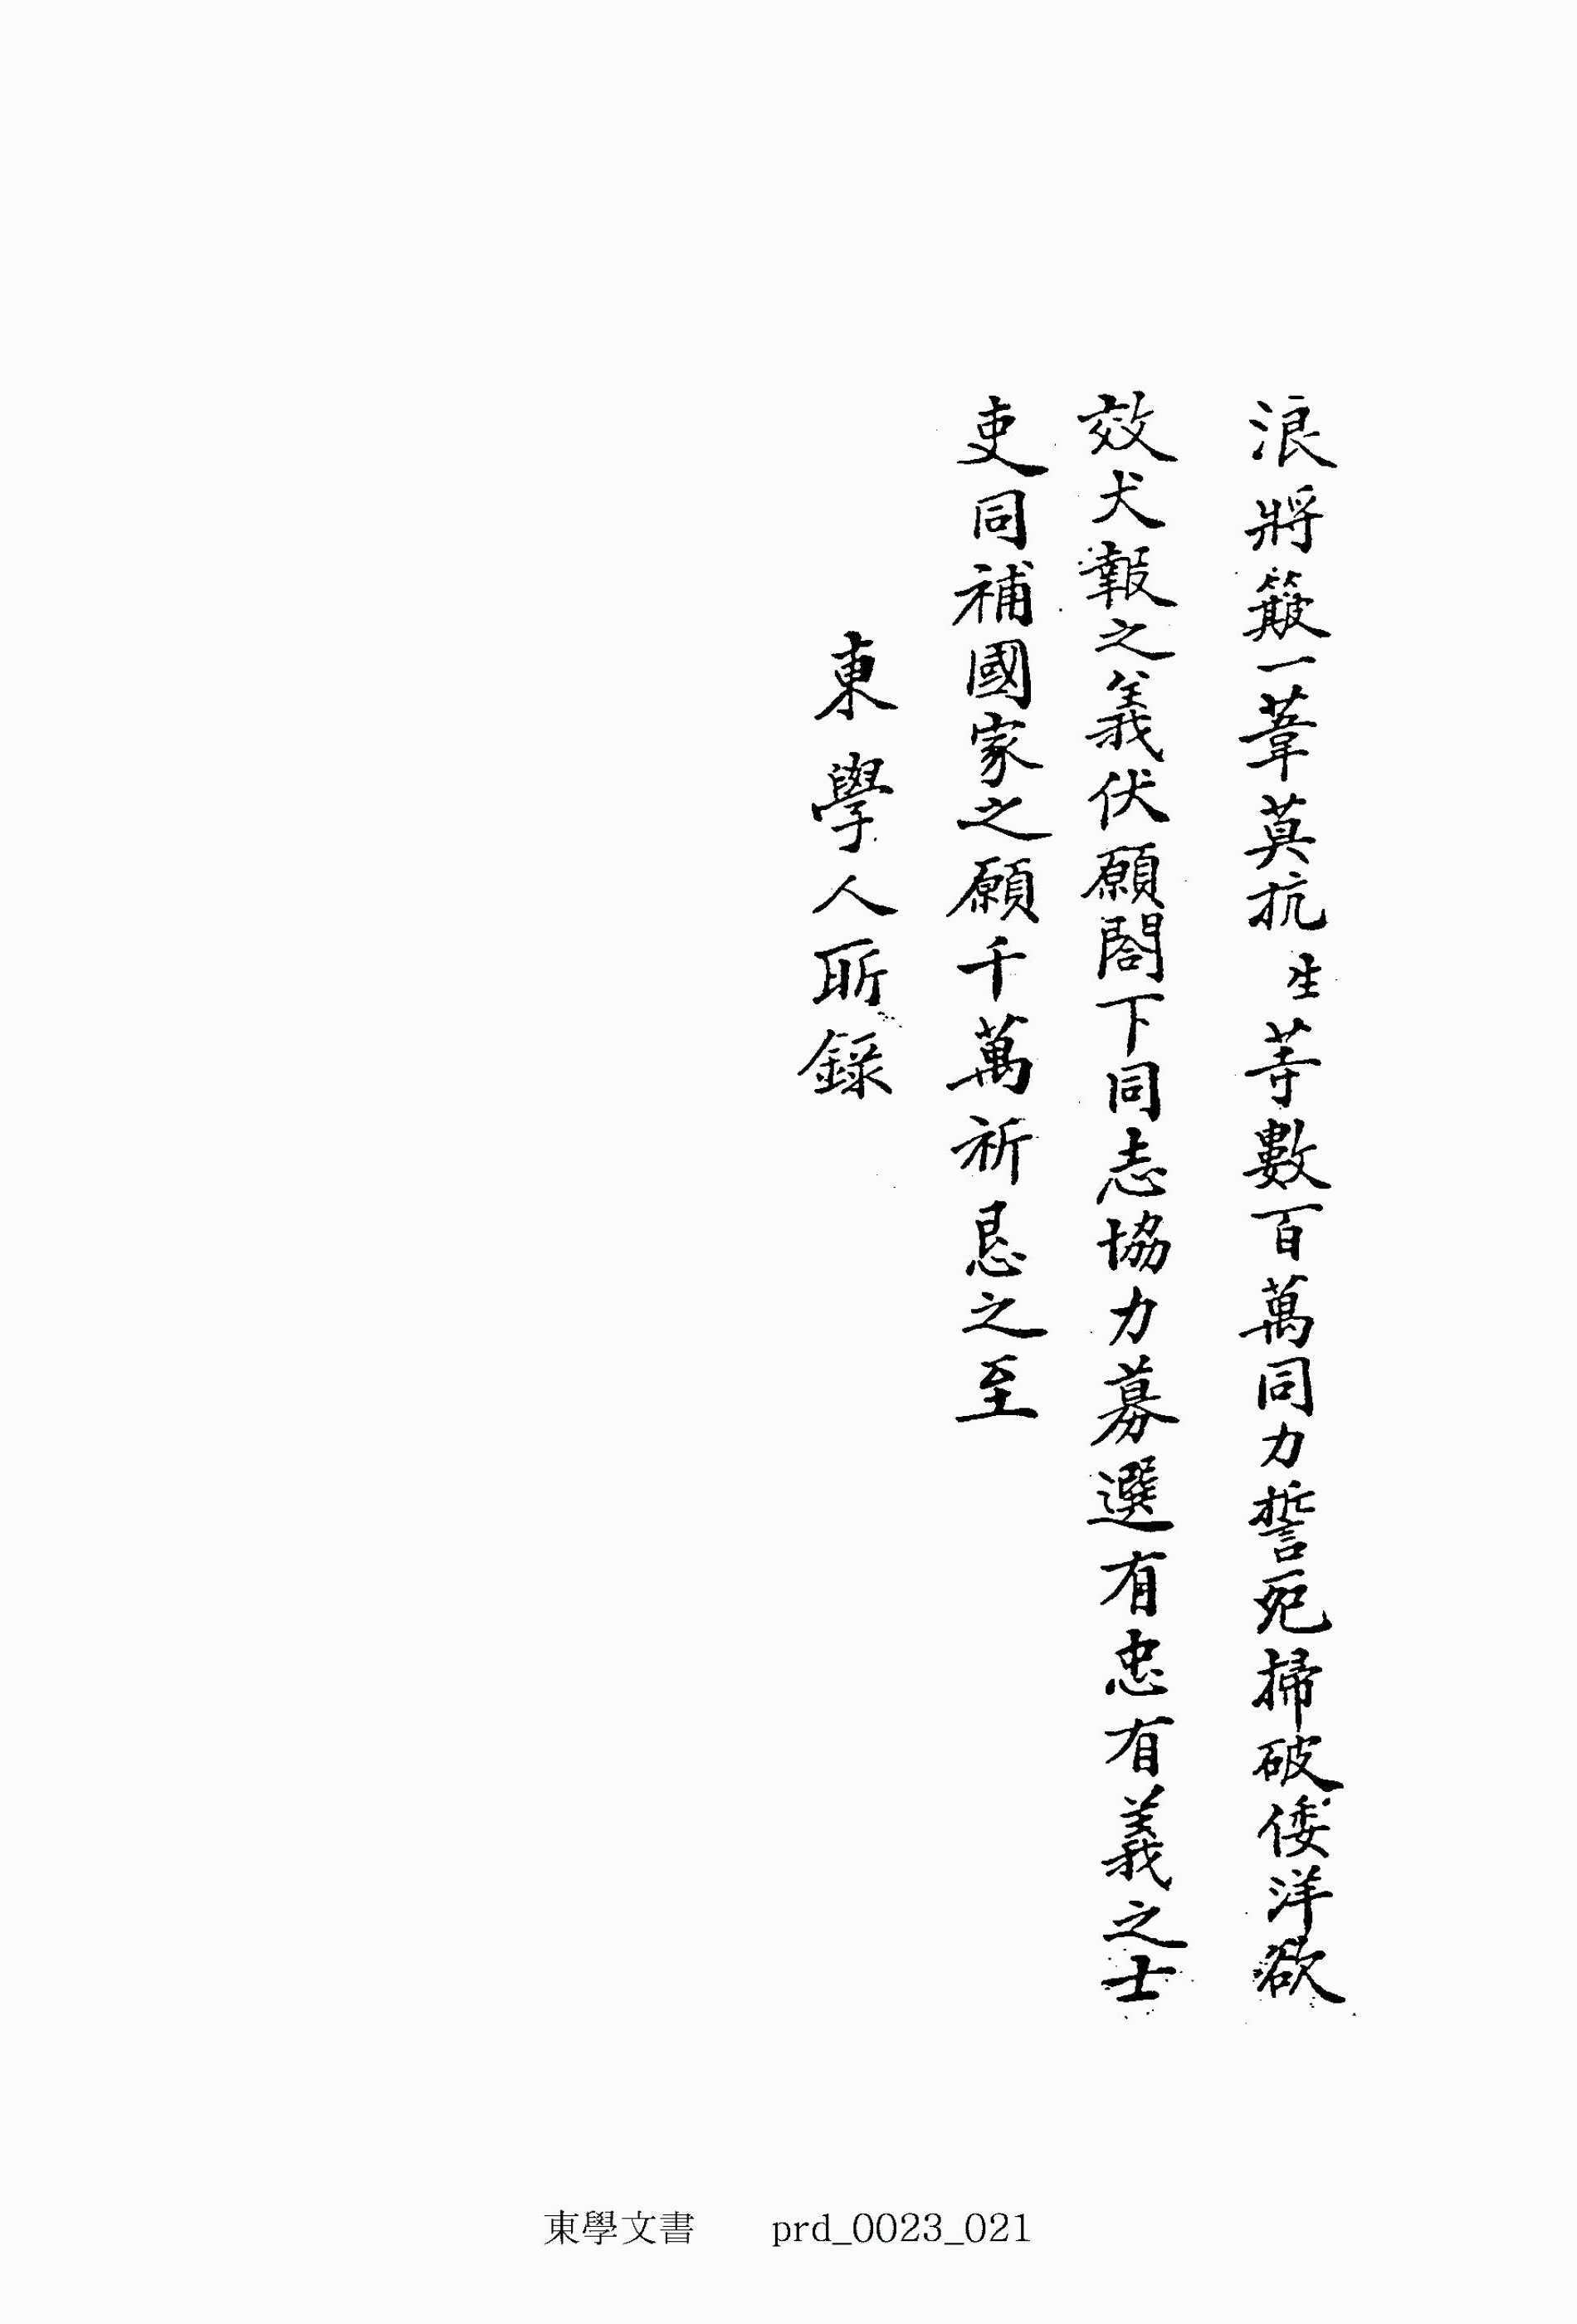 浪將簸一葦莫抗生等數百萬同力誓死掃破倭洋欲
效犬報之義伏願閤下同志協力募選有忠有義之士
吏同補國家之願千萬祈恳之至
東學人所錄
東學文書 prd_0023_021